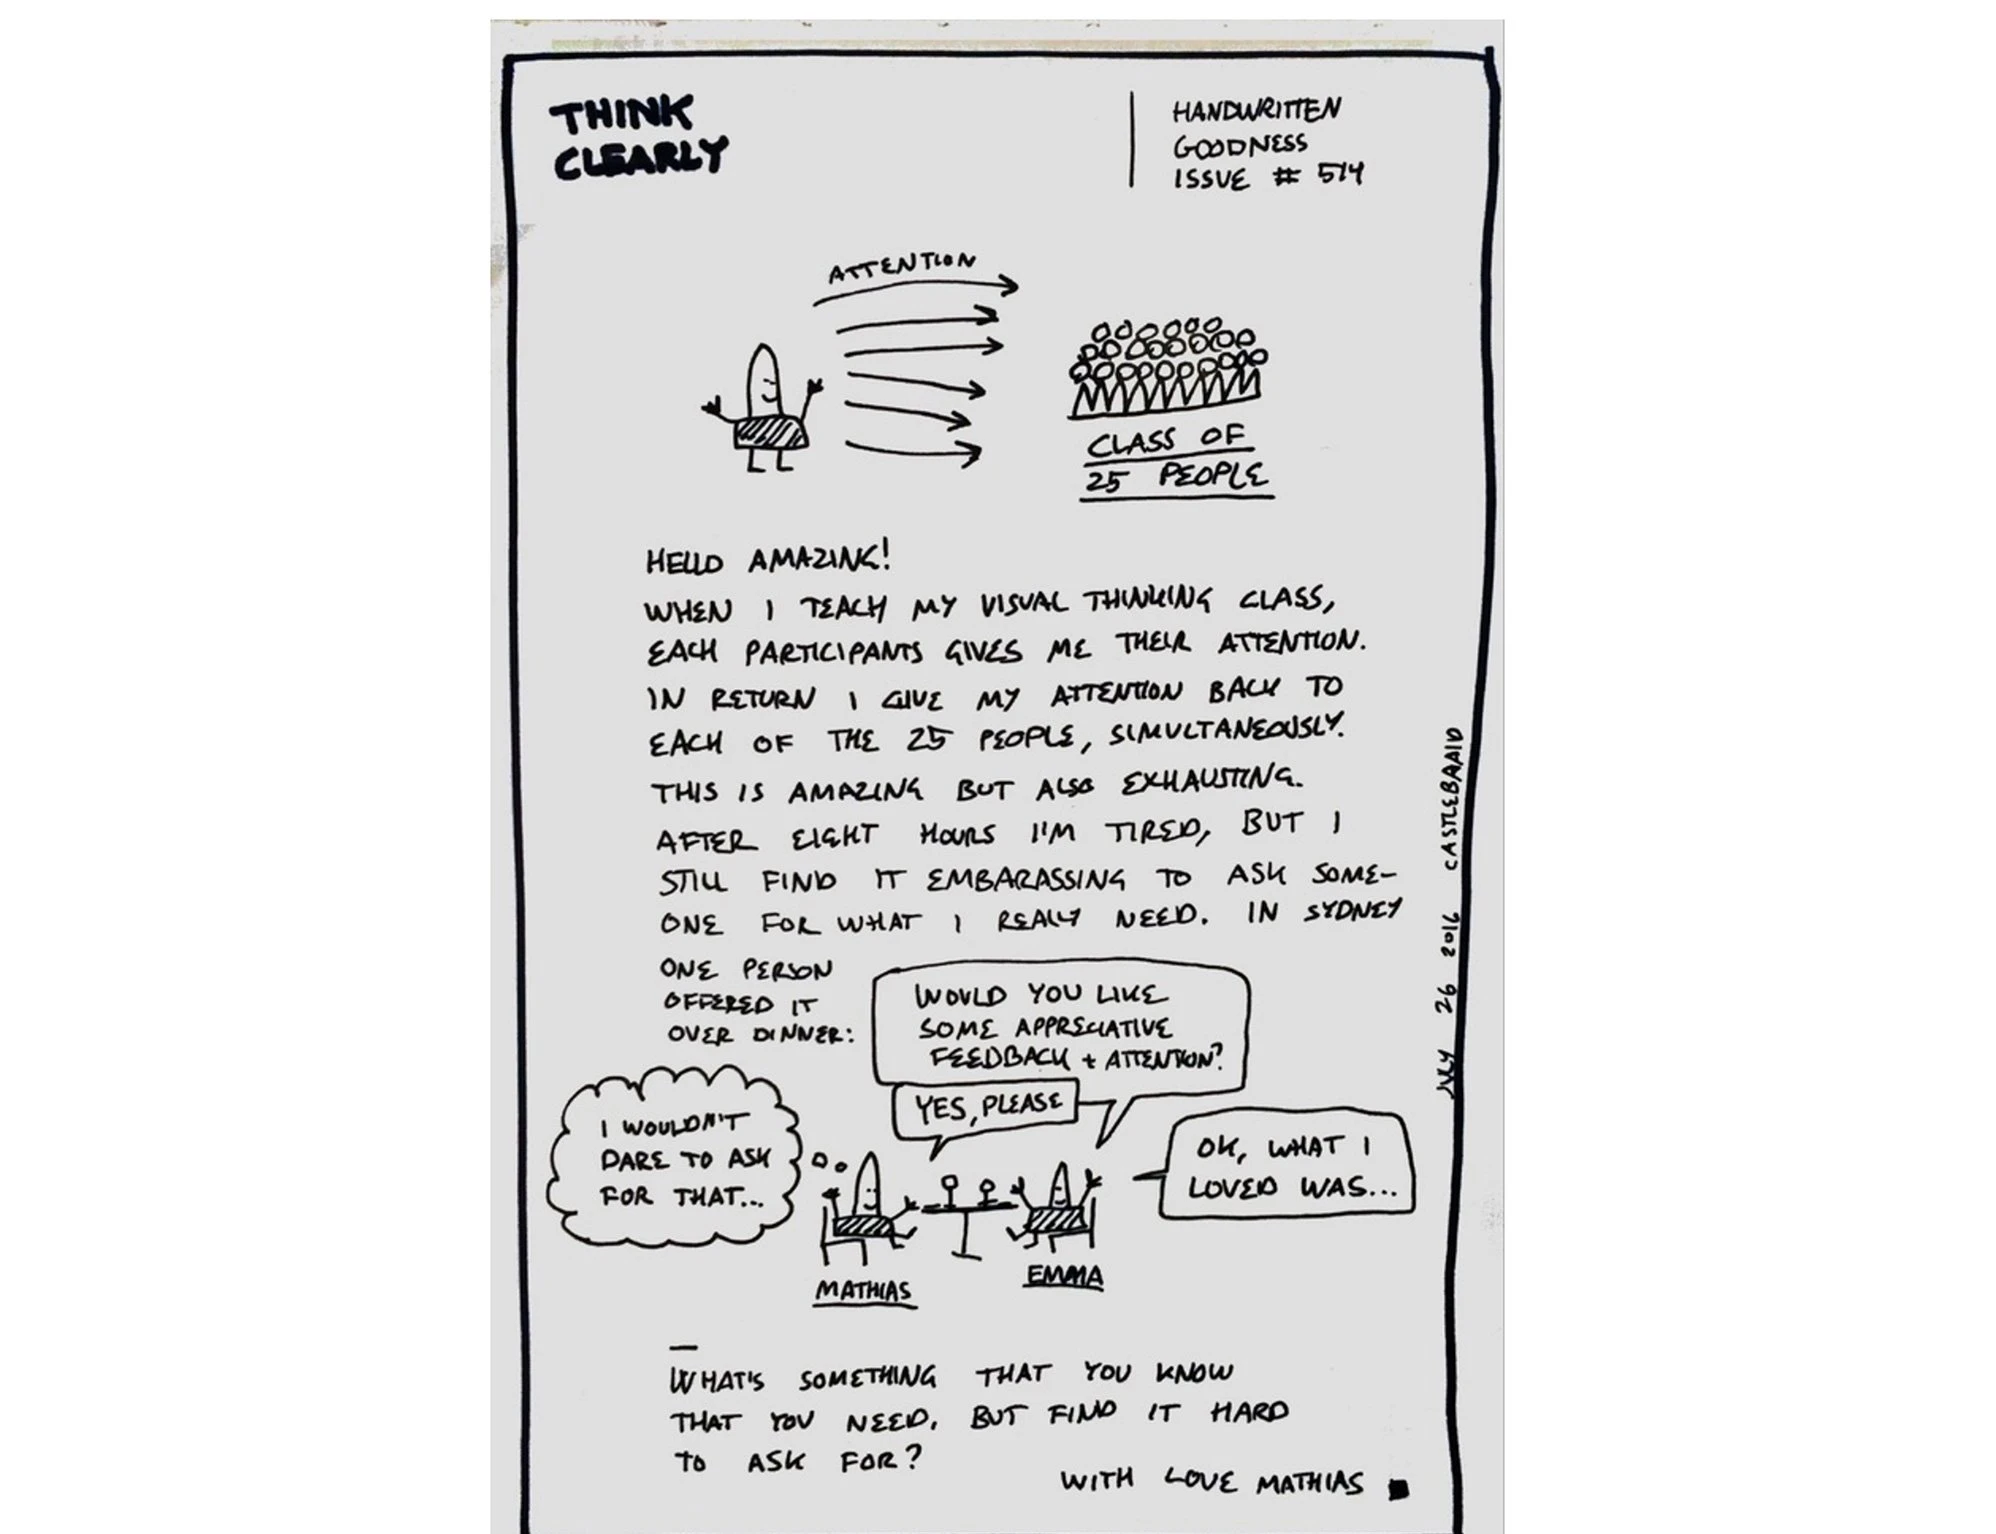 THINK
CLEARLY
HANDWRITTEN
GOODNESS
ISSUE # 514
ATTENTION
CLASS OF
25 PEOPLE
HELLO AMAZING!
WHEN I TEACH MY VISUAL THINKING CLASS,
EACH PARTICIPANTS GIVES ME THEIR ATTENTION.
IN RETURN I GIVE MY ATTENTION BACK TO
EACH OF THE 25 PEOPLE, SIMULTANEOUSLY.
THIS IS AMAZING BUT ALSO EXHAUSTING.
AFTER EIGHT HOURS I'M TIRED, BUT I
STILL FIND IT EMBARASSING TO ASK SOME-
ONE FOR WHAT I REALLY NEED. IN SYDNEY
ONE PERSON
OFFERED IT
OVER DINNER:
WOULD YOU LIKE
SOME APPRECIATIVE
FEEDBACK + ATTENTION?
YES, PLEASE
I WOULDN'T
DARE TO ASK
FOR THAT...
OK, WHAT I
LOVED WAS...
MATHIAS
EMMA
WHAT'S SOMETHING THAT YOU KNOW
THAT YOU NEED, BUT FIND IT HARD
TO ASK FOR?
WITH LOVE MATHIAS
26 2016 CASTLEBAAIA